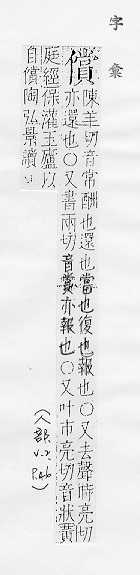 字彙
償
陳羊切音常酬也還也當也復也報也〇又去聲時亮切
亦還也〇又書兩切音賞亦報也〇又叶市亮切音狀黃
庭經保灌玉廬以
自償陶弘景讀